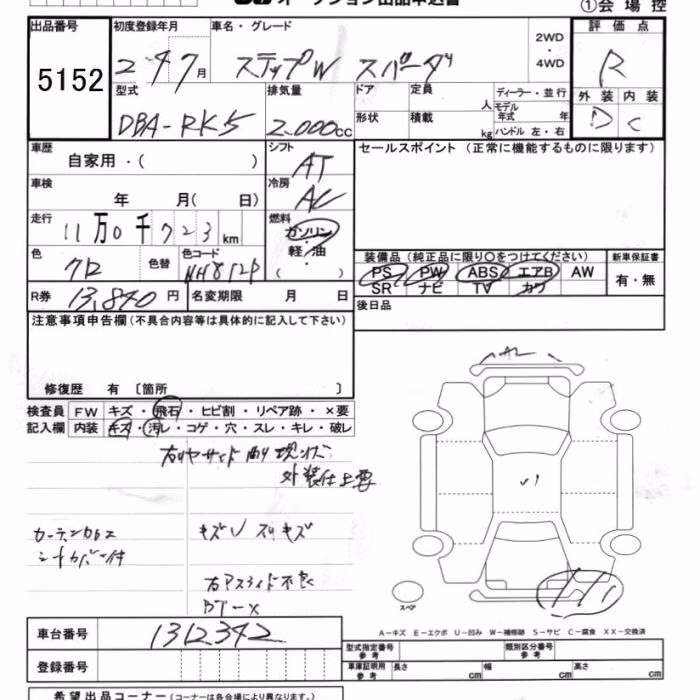 オークション出品申込書
①会場控
出品番号
5152
初度登録年月
2 4 7月
車名・グレード
ステップW スパーダ
2WD
・
4WD
評価点
R
型式
DBA-RK5
排気量
2.000cc
ドア
定員
人
形状
積載
kg
ディーラー・並行
モデル
年式 年
ハンドル 左・右
外装 内装
D C
車歴
自家用・( )
シフト
AT
セールスポイント (正常に機能するものに限ります)
車検
年 月( 日)
冷房
AC
走行
11万0千723km
燃料
ガソリン
軽・油
( )
色
クロ
色替
色コード
NH812P
装備品 (純正品に限り○をつけてください)
PS PW ABS エアB AW
SR ナビ TV カワ
新車保証書
有・無
R券 13,840円 名変期限 月 日
後日品
注意事項申告欄 (不具合内容等は具体的に記入して下さい)
修復歴 有 〔箇所 〕
検査員
記入欄
FW キズ・飛石・ヒビ割・リペア跡・×要
内装 キズ・汚レ・コゲ・穴・スレ・キレ・破レ
右リヤサイド 現状
外装仕上要
シートカバー付
キズU スリキズ
右 不良
スペア
A-キズ E-エクボ U-凹み W-補修跡 S-サビ C-腐食 XX-交換済
車台番号 1312342
登録番号
型式指定番号
参考
類別区分番号
参考
車庫証明用
参考
長さ cm 幅 cm 高さ cm
希望出品コーナー (コーナーは各会場により異なります。)